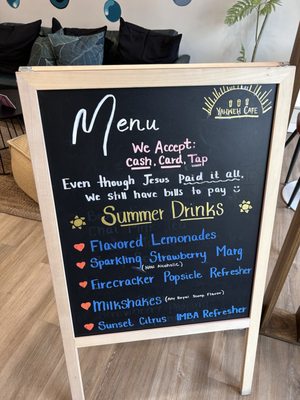 Menu
YAHWEH CAFE
We Accept:
cash, Card, Tap
Even though Jesus Paid it all,
We still have bills to pay
Summer Drinks
Flavored Lemonades
Sparkling Strawberry Marg
(Non Alcoholic)
Firecracker Popsicle Refresher
Milkshakes (Any Royal Scoop Flavor)
Sunset Citrus IMBA Refresher